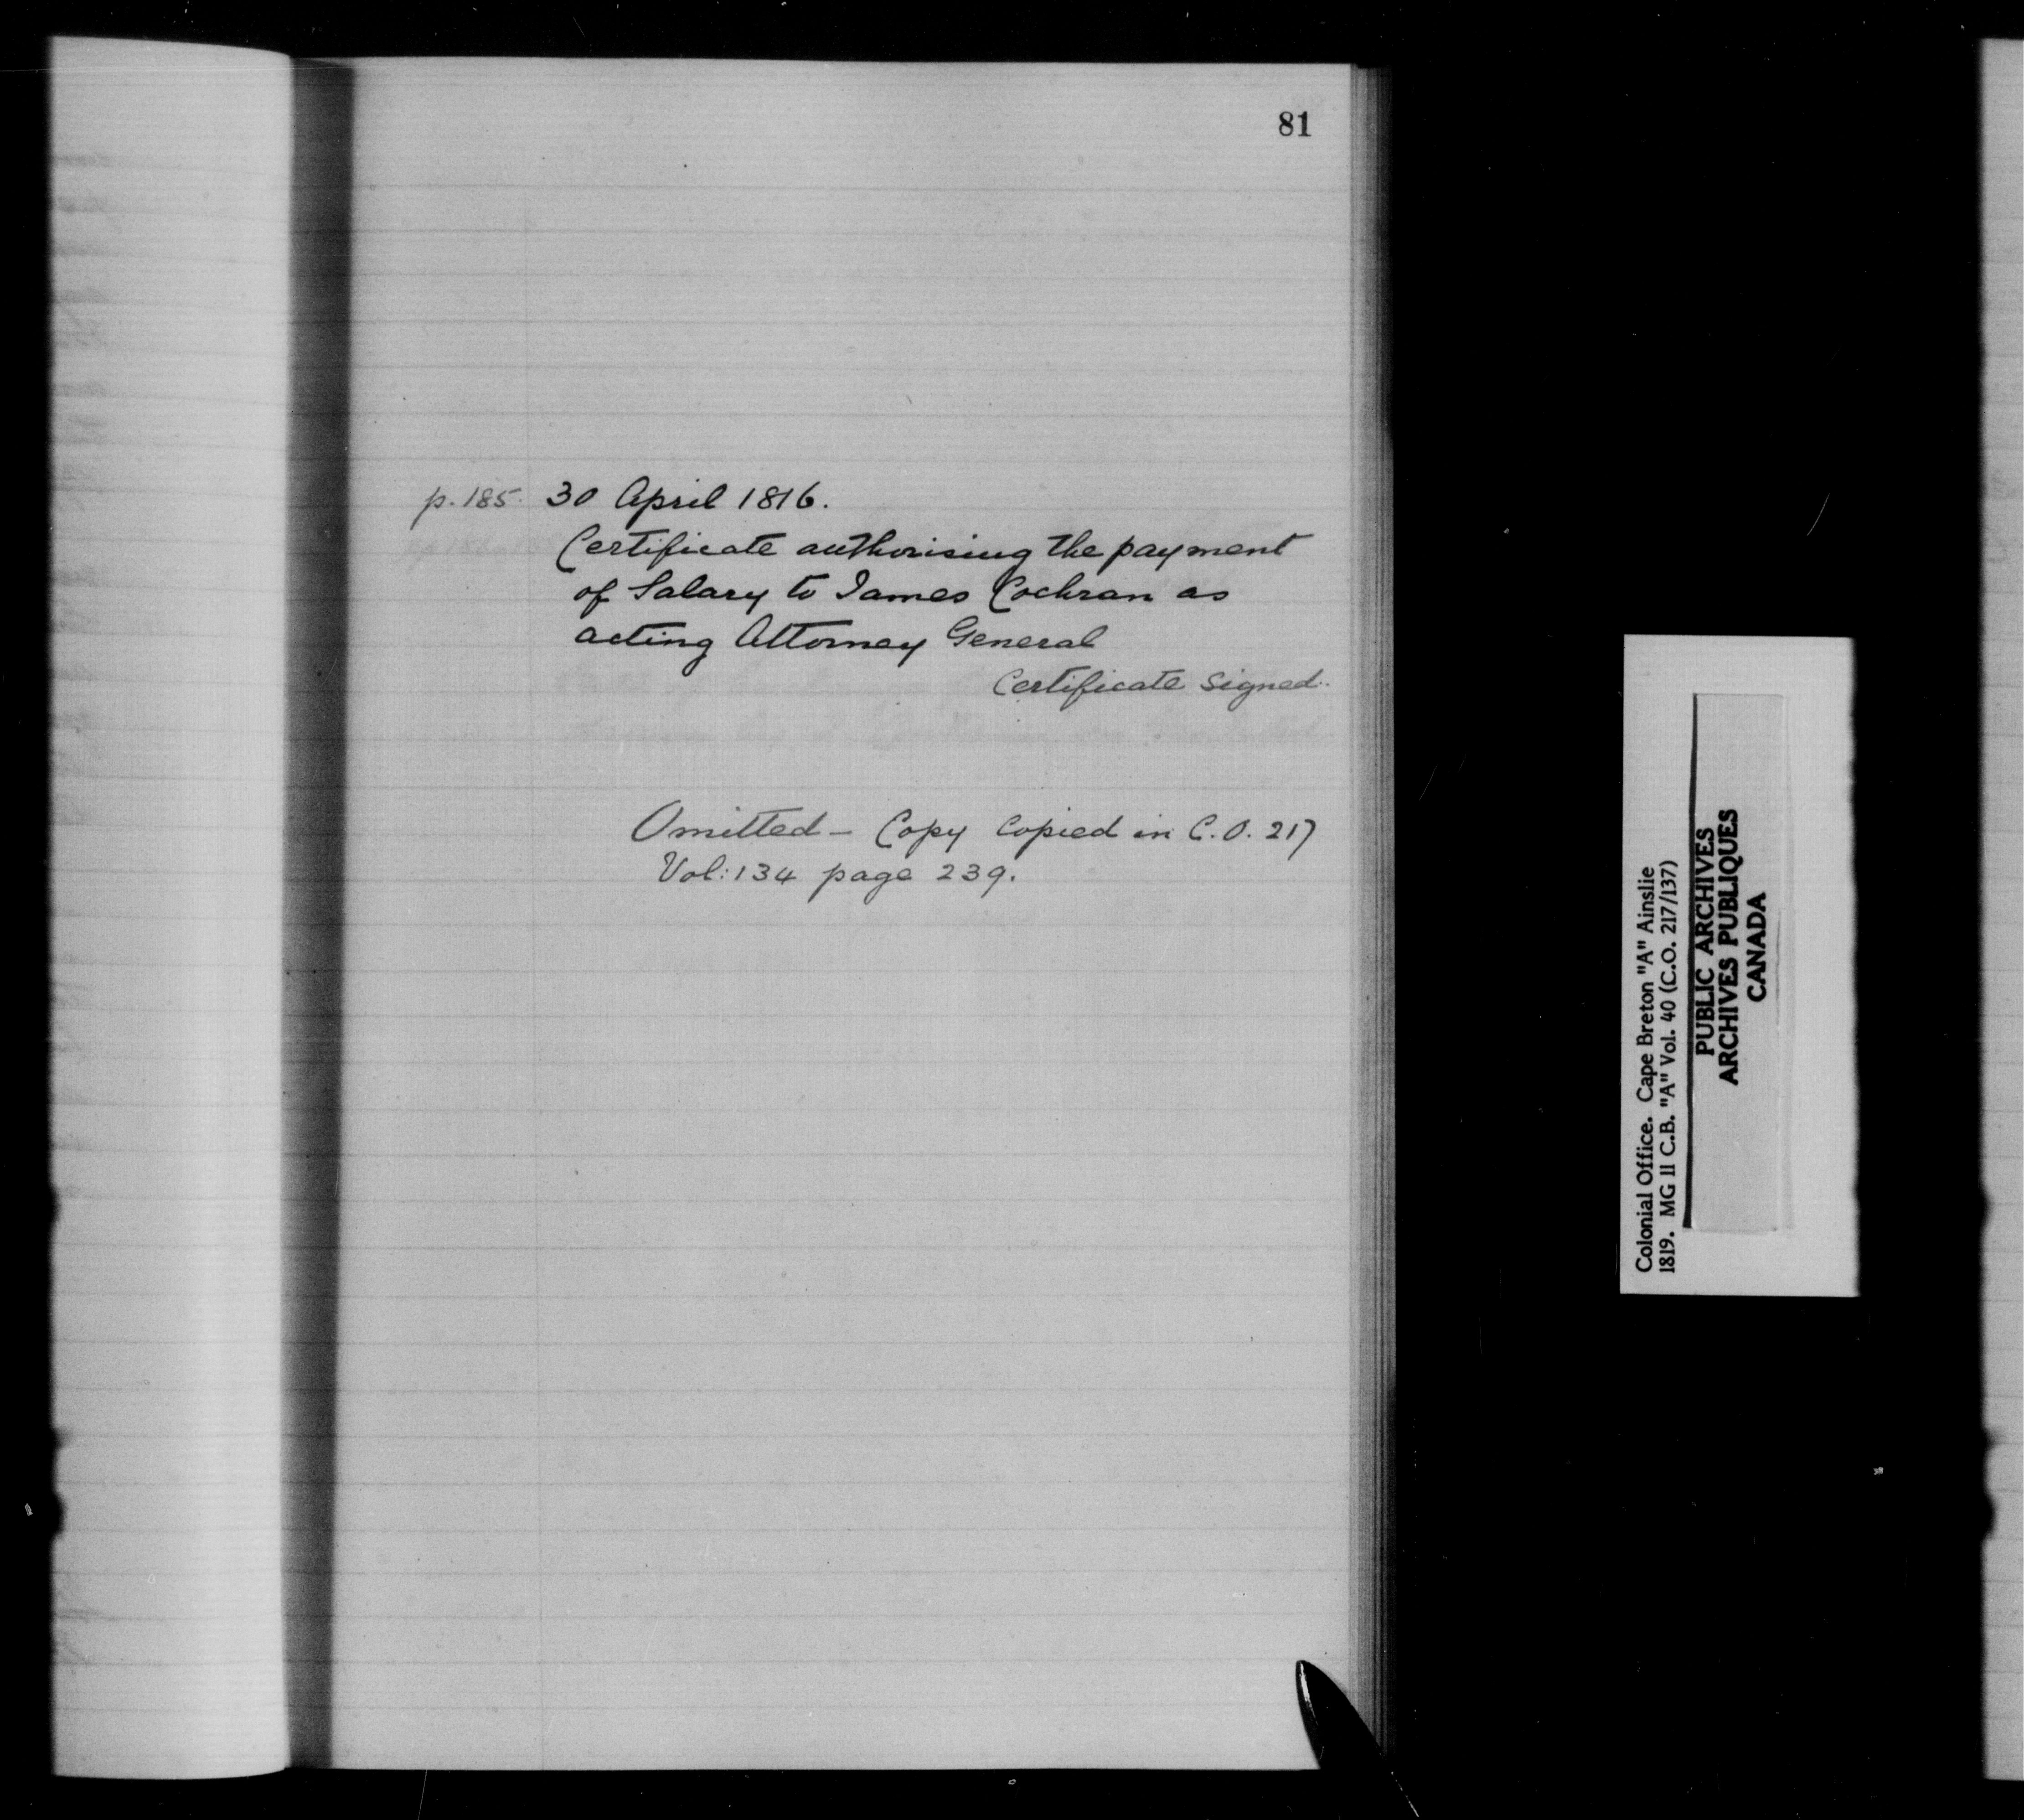 81
p. 185. 30 April 1816.
Certificate authorising the payment
of Salary to James Cochran as
acting Attorney General
Certificate Signed.
Omitted - Copy Copied in C.O. 217
Vol: 134 page 239.
Colonial Office. Cape Breton "A" Ainslie
1819. MG 11 C.B. "A" Vol. 40 (C.O. 217/137)
PUBLIC ARCHIVES
ARCHIVES PUBLIQUES
CANADA